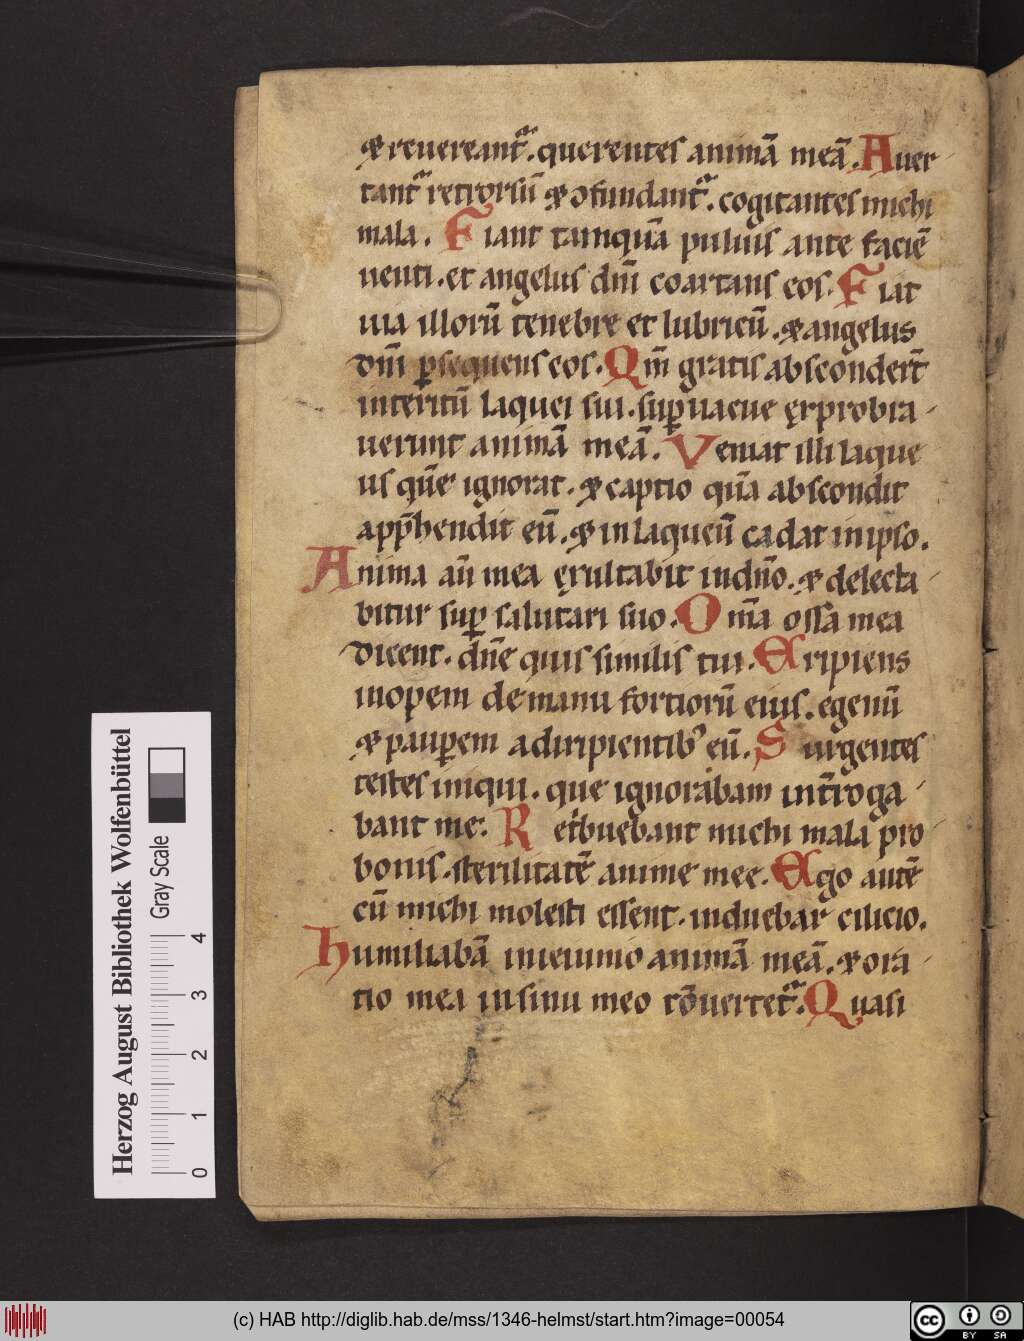 ⁊ reuereant᷑. querentes animā meā. Auer
tant᷑ retrorsū ⁊ ꝯfundant᷑. cogitantes michi
mala. Fiant tamquā puluis ante faciē
uenti. et angelus dn̄i coartans eos. Fiat
uia illorū tenebre et lubricū. ⁊ angelus
dn̄i ꝑsequens eos. Qm̄ gratis absconder̄t
interitū laquei sui. suꝑuacue exprobra
uerunt animā meā. Veniat illi laque
us quē ignorat. ⁊ captio quā abscondit
app̄hendit eū. ⁊ in laqueū cadat in ipso.
Anima aū mea exultabit in dn̄o. ⁊ delecta
bitur suꝑ salutari suo. Om̄a ossa mea
dicent. dn̄e quis similis tui. Eripiens
inopem de manu fortiorū eius. egenū
⁊ pauꝑem a diripientibꝰ eū. Surgentes
testes iniqui. que ignorabam int̄roga
bant me. Ret̄buebant michi mala pro
bonis. sterilitatē anime mee. Ego autē
cū michi molesti essent. induebar cilicio.
Humiliabā in ieiunio animā meā. ⁊ ora
tio mea in sinu meo cōuertet᷑. Quasi
Herzog August Bibliothek Wolfenbüttel
Gray Scale
0 1 2 3 4
(c) HAB http://diglib.hab.de/mss/1346-helmst/start.htm?image=00054
cc BY SA